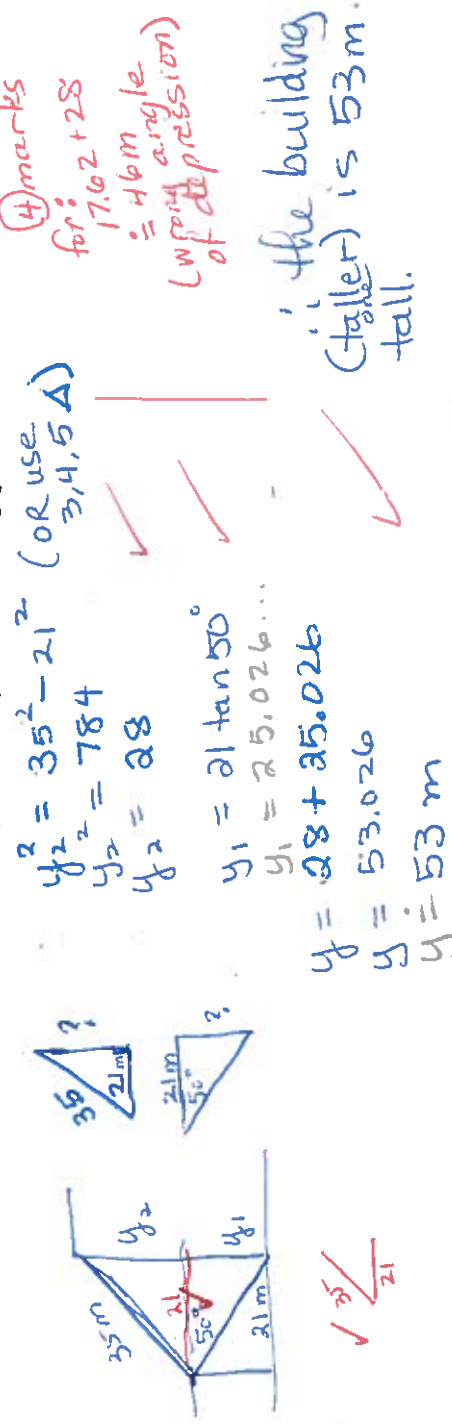 35 m
y₂
21
50°
y₁
21 m
✓ 35
21
35
?
21 m
21 m
50°
?
y₂² = 35² - 21² (OR use
3,4,5 Δ)
y₂² = 784
y₂ = 28
y₁ = 21 tan 50°
y₁ = 25.026...
y = 28 + 25.026
y = 53.026
y ≐ 53 m
④ marks
for:
17.62 + 28
≐ 46m
(wrong angle
of depression)
∴ the building
(taller) is 53 m
one
tall.